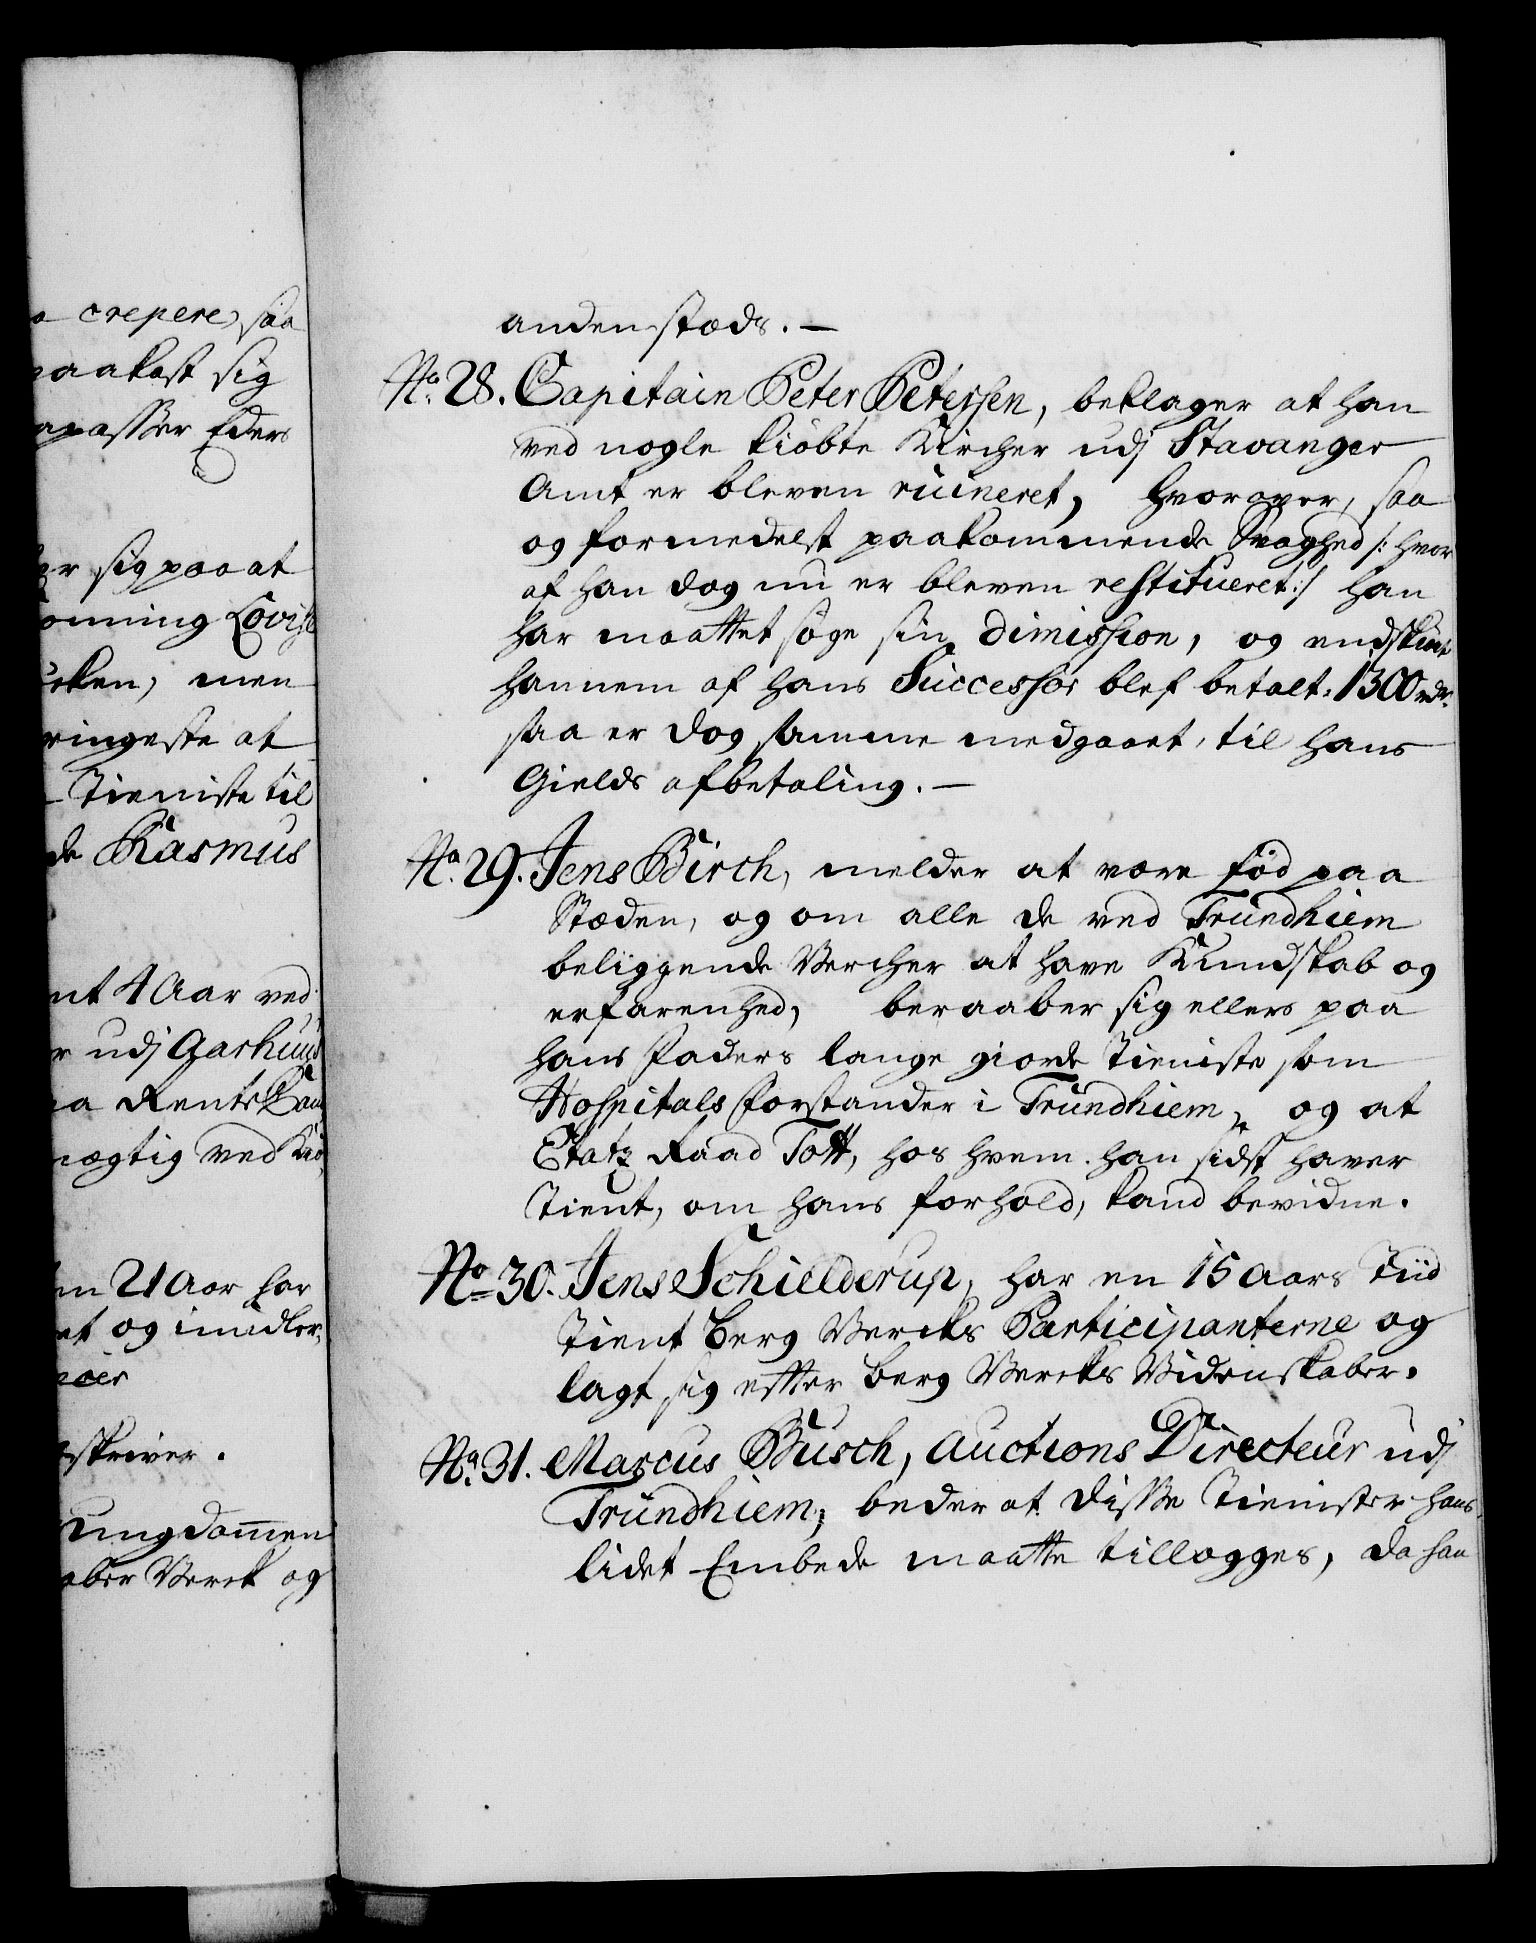 crepere, saa
paakast sig
apasser Eders
sig paa at
onning Lovise
rken, men
ringeste at
Tieniste til
de Rasmus
nt 4 Aar ved
r udj Aarhuus
a Rente Cam
mægtig ved
en 21 Aar har
et og imidler,
skriver.
Ungdommen
ober Verck og
andenstæds. —
No. 28. Capitain Peter Petersen, beklager at han
ved nogle kiöbte Kircher udj Stavanger
Amt er bleven ruineret, hvorover, saa
og formedelst paakommende Svaghed /: hvor
af han dog nu er bleven restitueret :/ han
har maattet söge sin dimission, og endskiönt
hannem af hans Successor blef betalt 1300 rdr.
saa er dog samme medgaaet, til hans
Gields afbetaling. —
No. 29. Jens Birch, melder at være föd paa
Stæden, og om alle de ved Trundhiem
beliggende Vercher at have Kundskab og
erfarenhed, beraaber sig ellers paa
hans Faders lange giorde Tieniste som
Hospitals Forstander i Trundhiem, og at
Etatz Raad Tott, hos hvem han sidst haver
Tient, om hans forhold, kand bevidne.
No. 30. Jens Schielderup, har en 15 Aars Tiid
Tient Berg Vercks Participanterne og
lagt sig efter Berg Vercks Videnskaber.
No. 31. Marcus Busch, Auctions Directeur udj
Trundhiem, beder at disse Tienister hans
lidet Embede maatte tillegges, da han